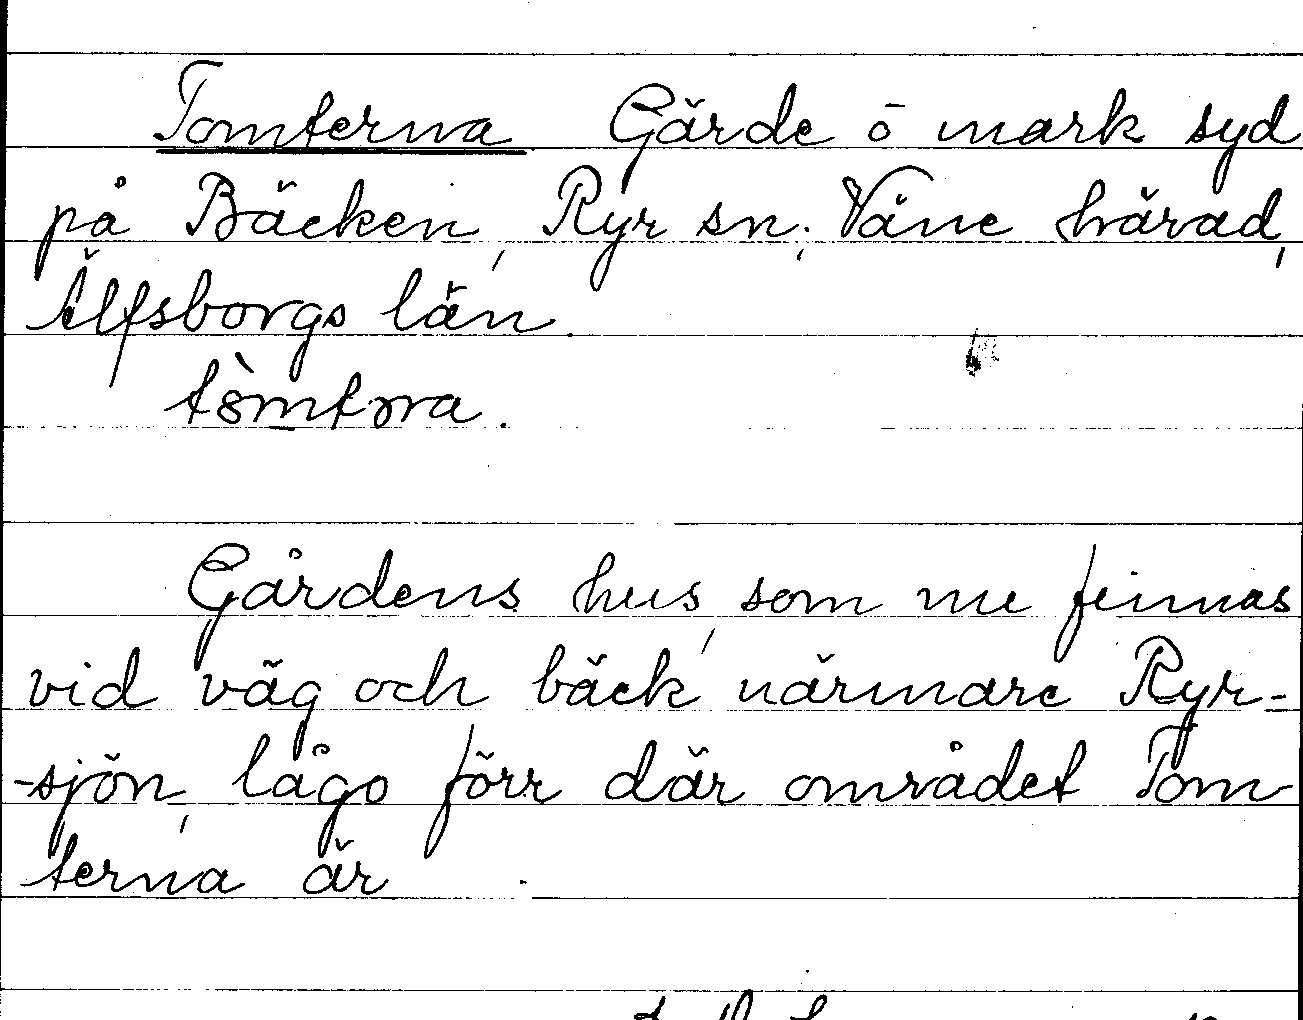 Tomterna Gärde o mark syd
på Bäcken, Ryr sn; Väne härad,
Älfsborgs län.
Gårdens hus, som nu finnas
vid väg och bäck närmare Ryr-
-sjön, lågo förr där området Tom
terna är.